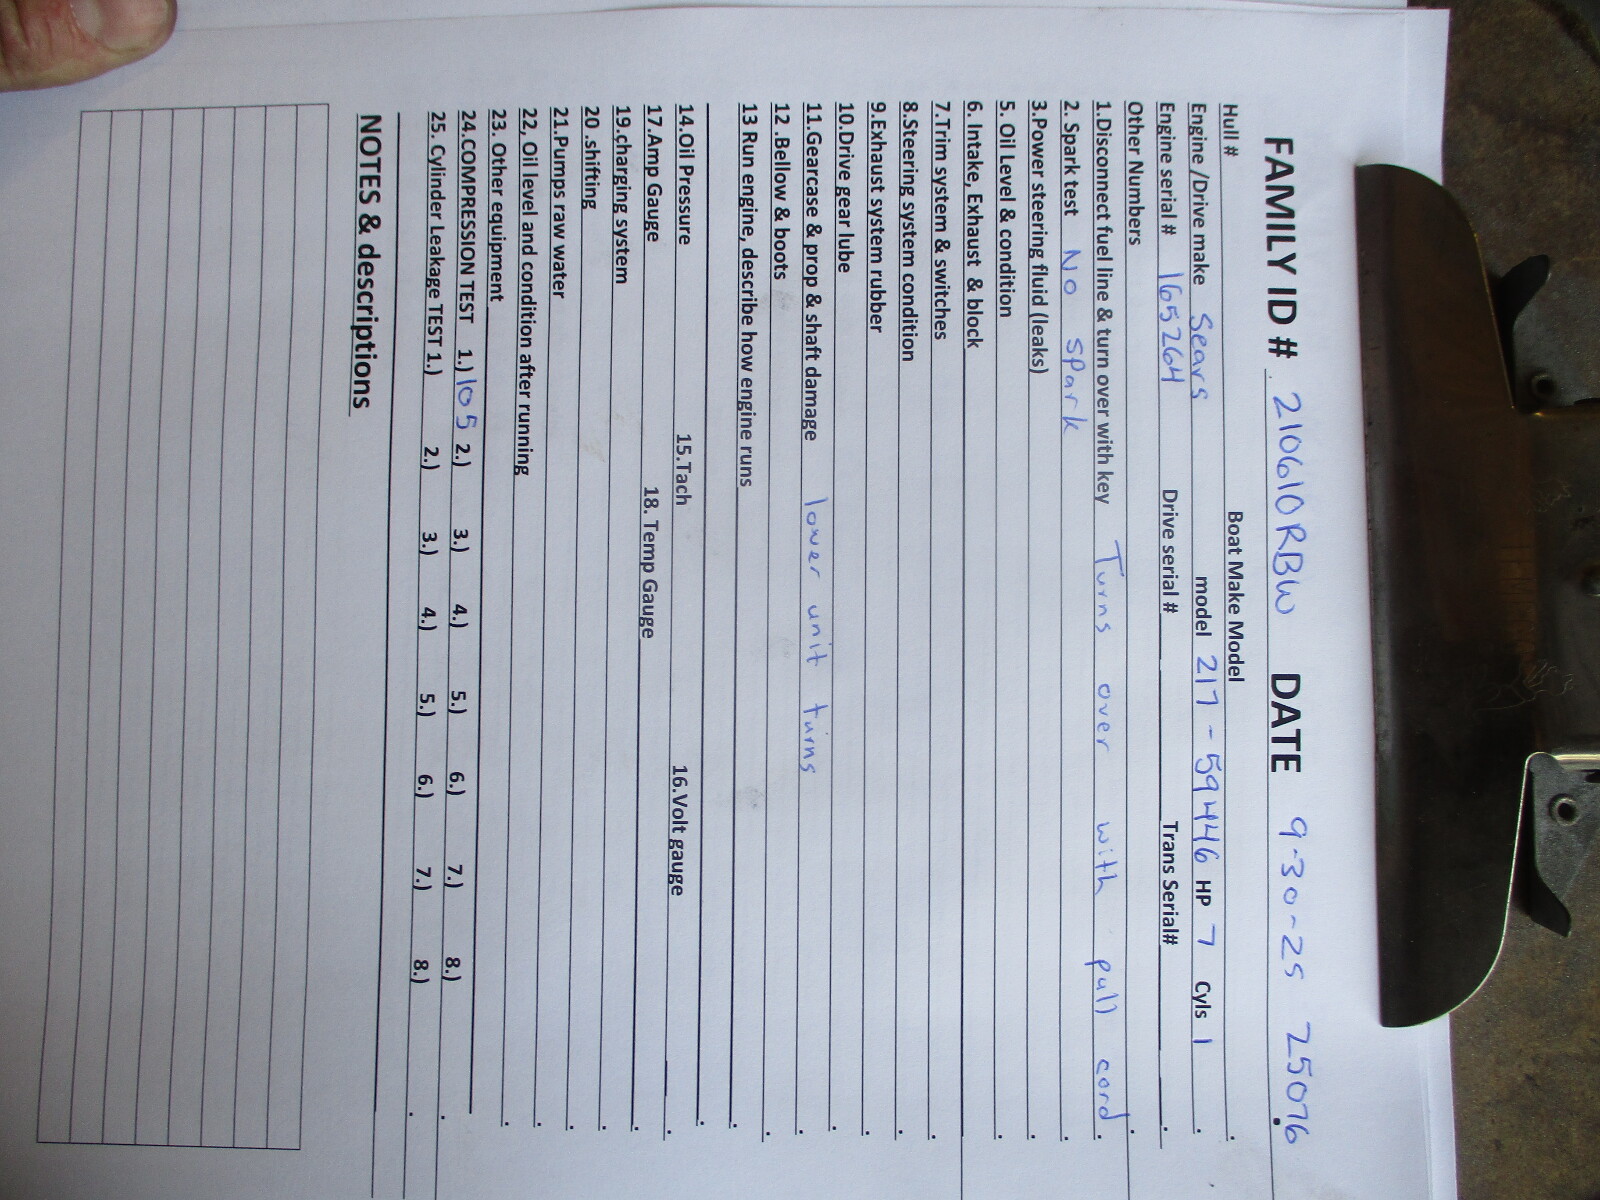 FAMILY ID # 210610RBW DATE 9-30-25 25076
Hull # Boat Make Model
Engine /Drive make Sears model 217-59446 HP 7 Cyls 1
Engine serial # 165264 Drive serial # Trans Serial#
Other Numbers
1.Disconnect fuel line & turn over with key Turns over with pull cord
2. Spark test No spark
3.Power steering fluid (leaks)
5. Oil Level & condition
6. Intake, Exhaust & block
7.Trim system & switches
8.Steering system condition
9.Exhaust system rubber
10.Drive gear lube
11.Gearcase & prop & shaft damage lower unit turns
12 .Bellow & boots
13 Run engine, describe how engine runs
14.Oil Pressure 15.Tach 16.Volt gauge
17.Amp Gauge 18. Temp Gauge
19.charging system
20 .shifting
21.Pumps raw water
22, Oil level and condition after running
23. Other equipment
24.COMPRESSION TEST 1.) 105 2.) 3.) 4.) 5.) 6.) 7.) 8.)
25. Cylinder Leakage TEST 1.) 2.) 3.) 4.) 5.) 6.) 7.) 8.)
NOTES & descriptions